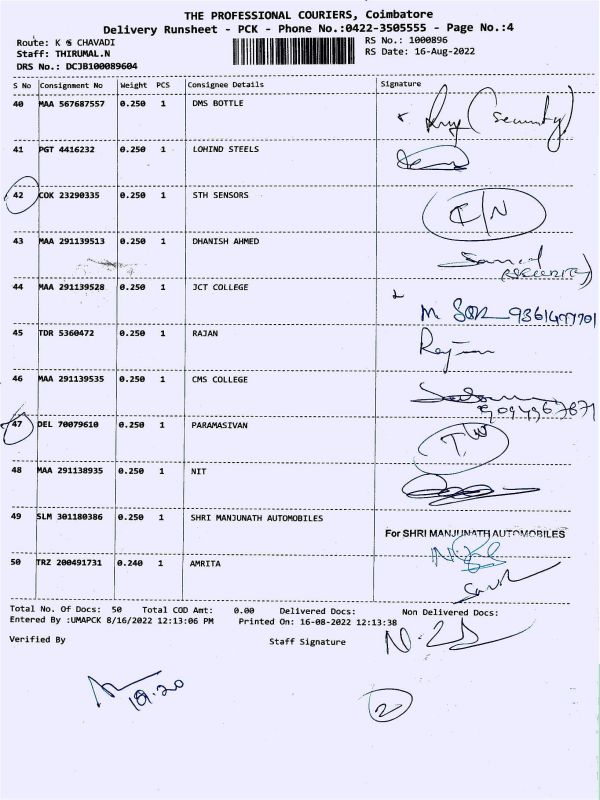 THE PROFESSIONAL COURIERS, Coimbatore
Delivery Runsheet - PCK - Phone No.:0422-3505555 - Page No.:4
Route: K G CHAVADI
RS No.: 1000896
Staff: THIRUMAL.N
RS Date: 16-Aug-2022
DRS No.: DCJB100089604
S No Consignment No Weight PCS Consignee Details Signature
40 MAA 567687557 0.250 1 DMS BOTTLE
(Security)
41 PGT 4416232 0.250 1 LOHIND STEELS
42 COK 23290335 0.250 1 STH SENSORS
43 MAA 291139513 0.250 1 DHANISH AHMED
44 MAA 291139528 0.250 1 JCT COLLEGE
45 TDR 5360472 0.250 1 RAJAN
Rajan
46 MAA 291139535 0.250 1 CMS COLLEGE
47 DEL 70079610 0.250 1 PARAMASIVAN
T.W
48 MAA 291138935 0.250 1 NIT
49 SLM 301180386 0.250 1 SHRI MANJUNATH AUTOMOBILES
For SHRI MANJUNATH AUTOMOBILES
50 TRZ 200491731 0.240 1 AMRITA
Total No. Of Docs: 50 Total COD Amt: 0.00 Delivered Docs: Non Delivered Docs:
Entered By :UMAPCK 8/16/2022 12:13:06 PM Printed On: 16-08-2022 12:13:38
Verified By Staff Signature
19.20
2